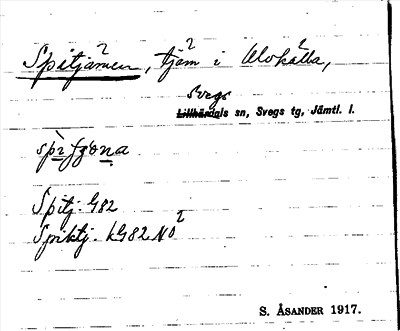 Spitjärnen, tjärn i Ulvkälla,
Svegs
Lillhärdals sn, Svegs tg, Jämtl. l.
Spitj. G82
Spiktj. kG82NO
S. ÅSANDER 1917.